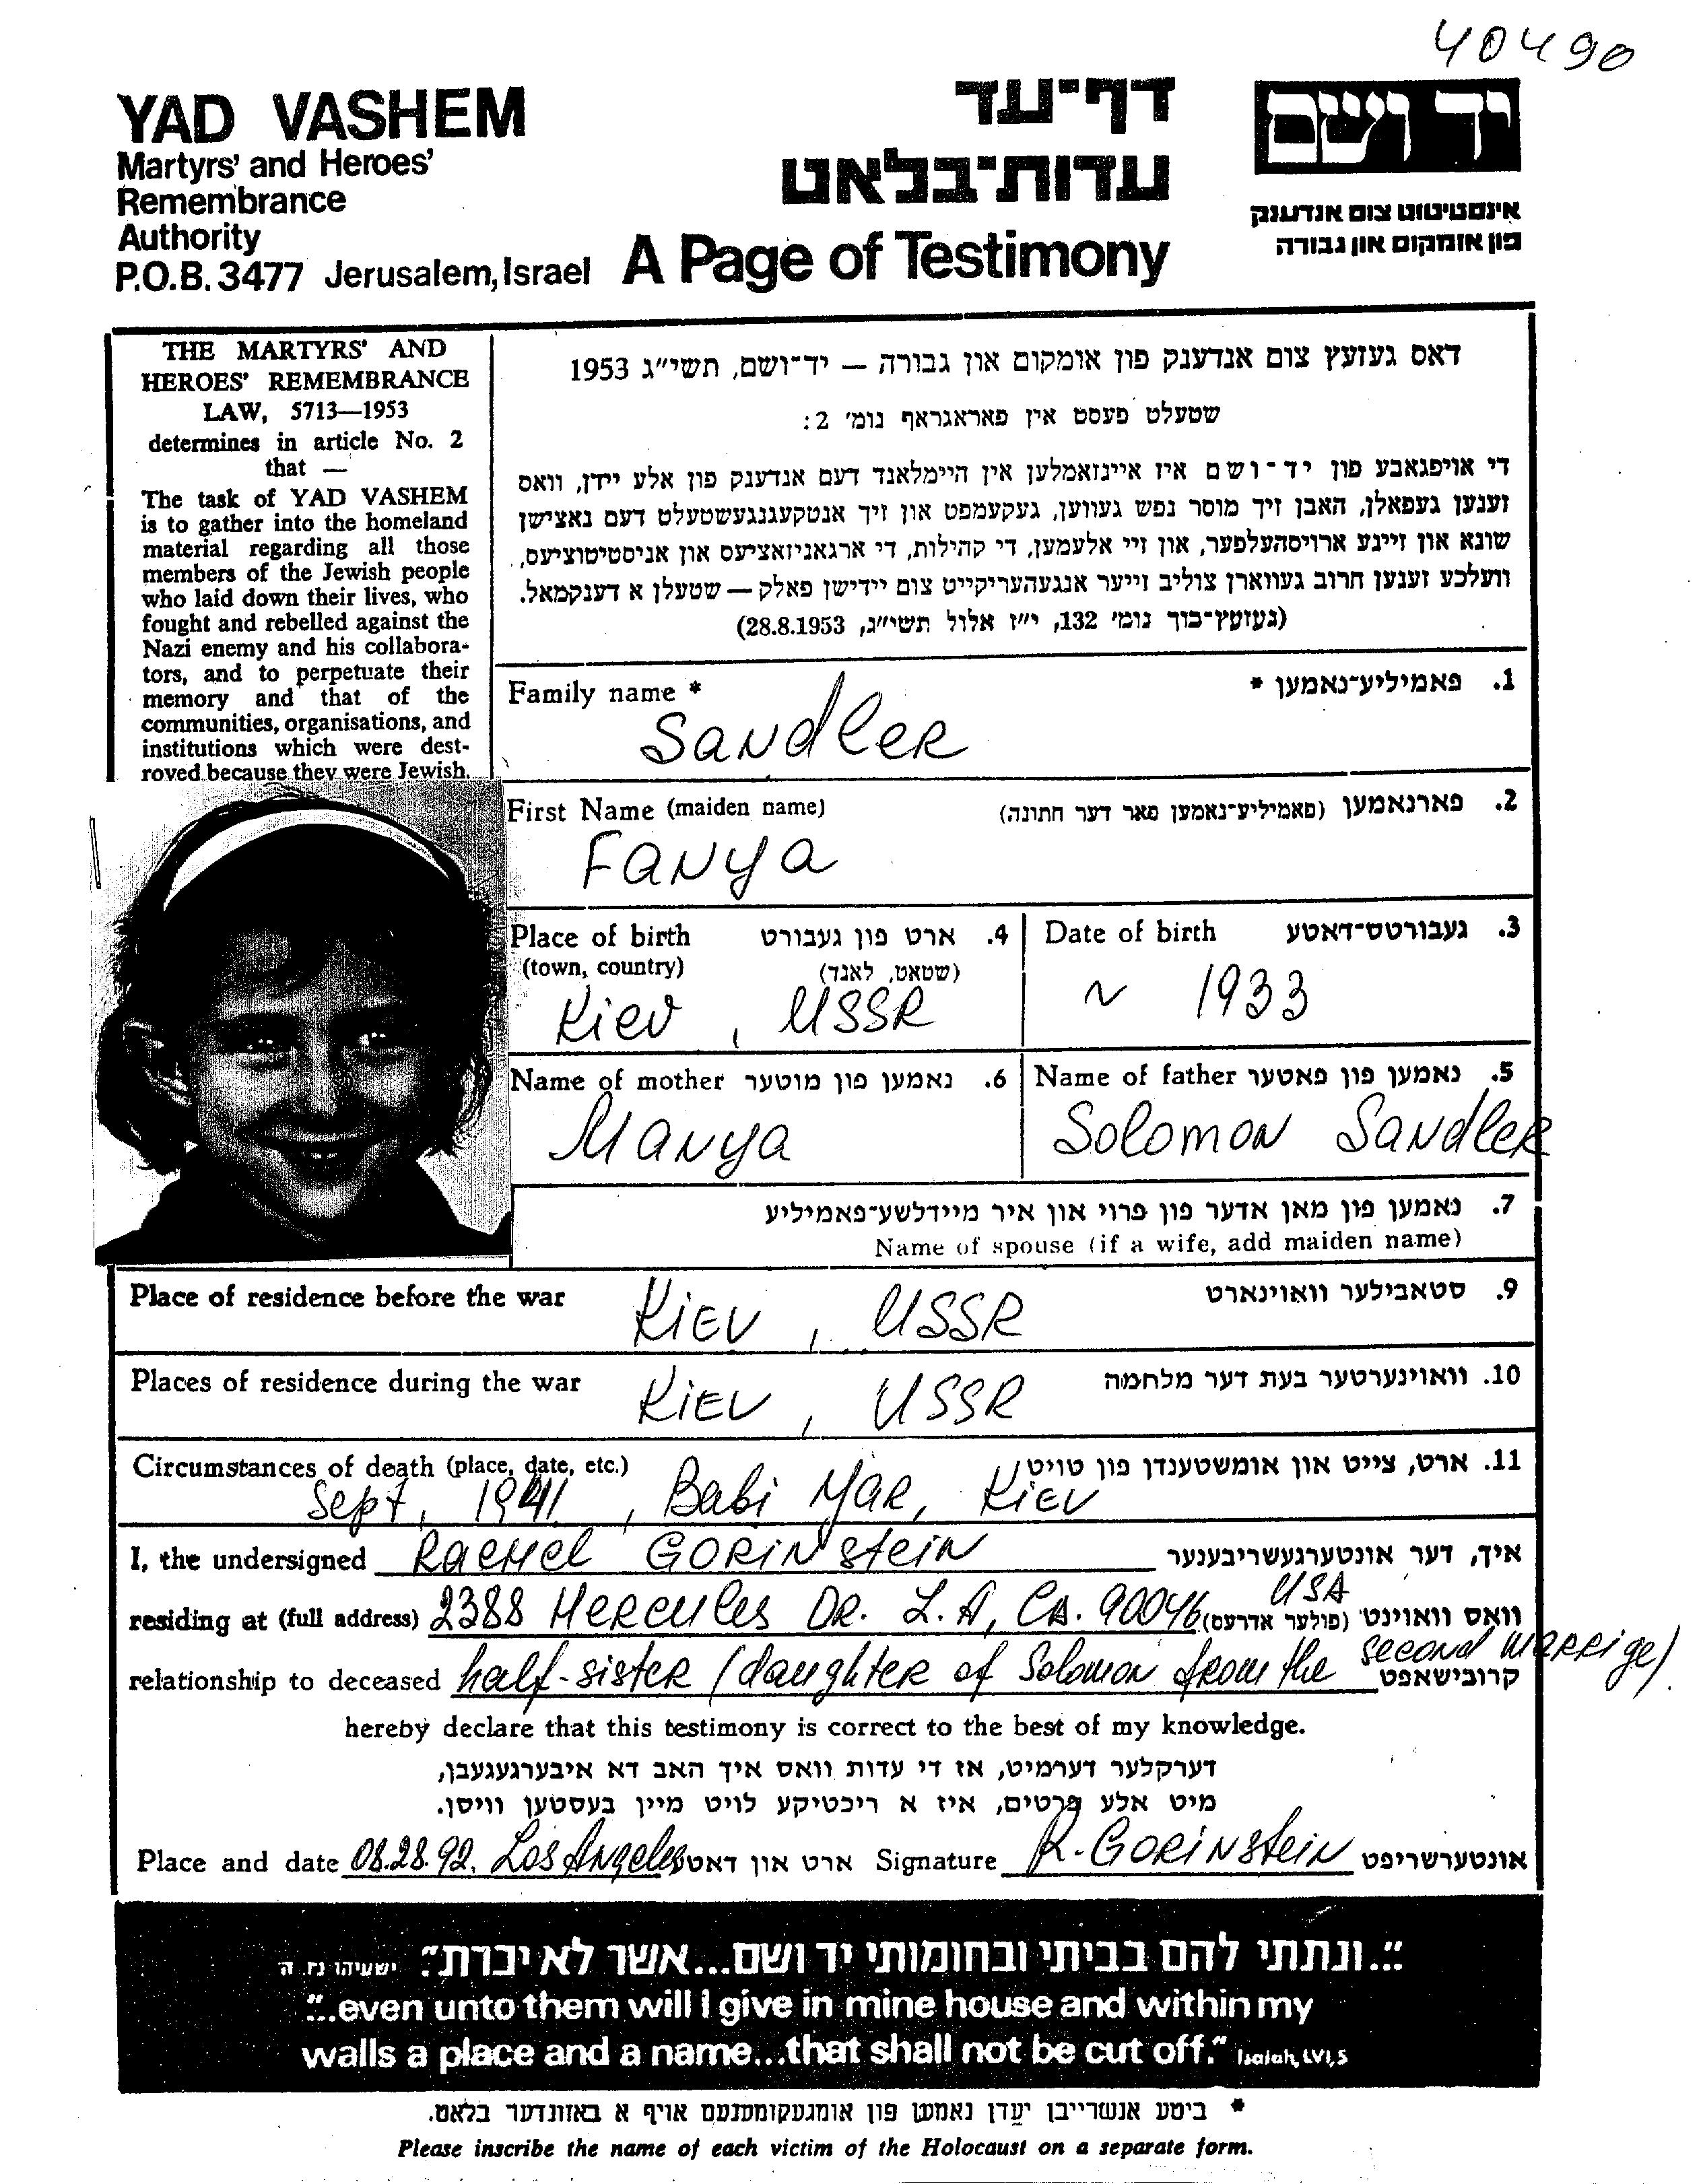 40490
YAD VASHEM
Martyrs' and Heroes'
Remembrance
Authority
P.O.B. 3477 Jerusalem, Israel
דף־עד
עדות־בלאט
A Page of Testimony
יד ושם
אינסטיטוט צום אנדענק
פון אומקום און גבורה
THE MARTYRS' AND
HEROES' REMEMBRANCE
LAW, 5713—1953
determines in article No. 2
that —
The task of YAD VASHEM
is to gather into the homeland
material regarding all those
members of the Jewish people
who laid down their lives, who
fought and rebelled against the
Nazi enemy and his collabora-
tors, and to perpetuate their
memory and that of the
communities, organisations, and
institutions which were dest-
royed because they were Jewish.
דאס געזעץ צום אנדענק פון אומקום און גבורה — יד־ושם, תשי״ג 1953
שטעלט פעסט אין פאראגראף נומ׳ 2:
די אויפגאבע פון יד־ושם איז איינזאמלען אין היימלאנד דעם אנדענק פון אלע יידן, וואס
זענען געפאלן, האבן זיך מוסר נפש געווען, געקעמפט און זיך אנטקעגנגעשטעלט דעם נאצישן
שונא און זיינע ארויסהעלפער, און זיי אלעמען, די קהילות, די ארגאניזאציעס און אניסטיטוציעס,
וועלכע זענען חרוב געווארן צוליב זייער אנגעהעריקייט צום יידישן פאלק — שטעלן א דענקמאל.
(געזעץ־בוך נומ׳ 132, י״ז אלול תשי״ג, 28.8.1953)
Family name * 1. פאמיליע־נאמען *
Sandler
First Name (maiden name) 2. פארנאמען (פאמיליע־נאמען פאר דער חתונה)
Fanya
Place of birth 4. ארט פון געבורט
(town, country) (שטאט, לאנד)
Kiev, USSR
Date of birth 3. געבורטס־דאטע
~ 1933
Name of mother 6. נאמען פון מוטער
Manya
Name of father 5. נאמען פון פאטער
Solomon Sandler
7. נאמען פון מאן אדער פון פרוי און איר מיידלשע־פאמיליע
Name of spouse (if a wife, add maiden name)
Place of residence before the war Kiev, USSR 9. סטאבילער וואוינארט
Places of residence during the war Kiev, USSR 10. וואוינערטער בעת דער מלחמה
Circumstances of death (place, date, etc.) 11. ארט, צייט און אומשטענדן פון טויט
Sept, 1941, Babi Yar, Kiev
I, the undersigned Rachel GORINstein איך, דער אונטערגעשריבענער
residing at (full address) 2388 Hercules DR. L.A, Ca. 90046 USA וואס וואוינט (פולער אדרעס)
relationship to deceased half-sister (daughter of Solomon from the second marrige) קרובישאפט
hereby declare that this testimony is correct to the best of my knowledge.
דערקלער דערמיט, אז די עדות וואס איך האב דא איבערגעגעבן,
מיט אלע פרטים, איז א ריכטיקע לויט מיין בעסטען וויסן.
Place and date 08.28.92. Los Angeles ארט און דאטע Signature R. GORINstein אונטערשריפט
"...ונתתי להם בביתי ובחומותי יד ושם...אשר לא יכרת." ישעיהו נו, ה
"...even unto them will I give in mine house and within my
walls a place and a name...that shall not be cut off." Isaiah, LVI, 5
* ביטע אנשרייבן יעדן נאמען פון אומגעקומענעם אויף א באזונדער בלאט.
Please inscribe the name of each victim of the Holocaust on a separate form.